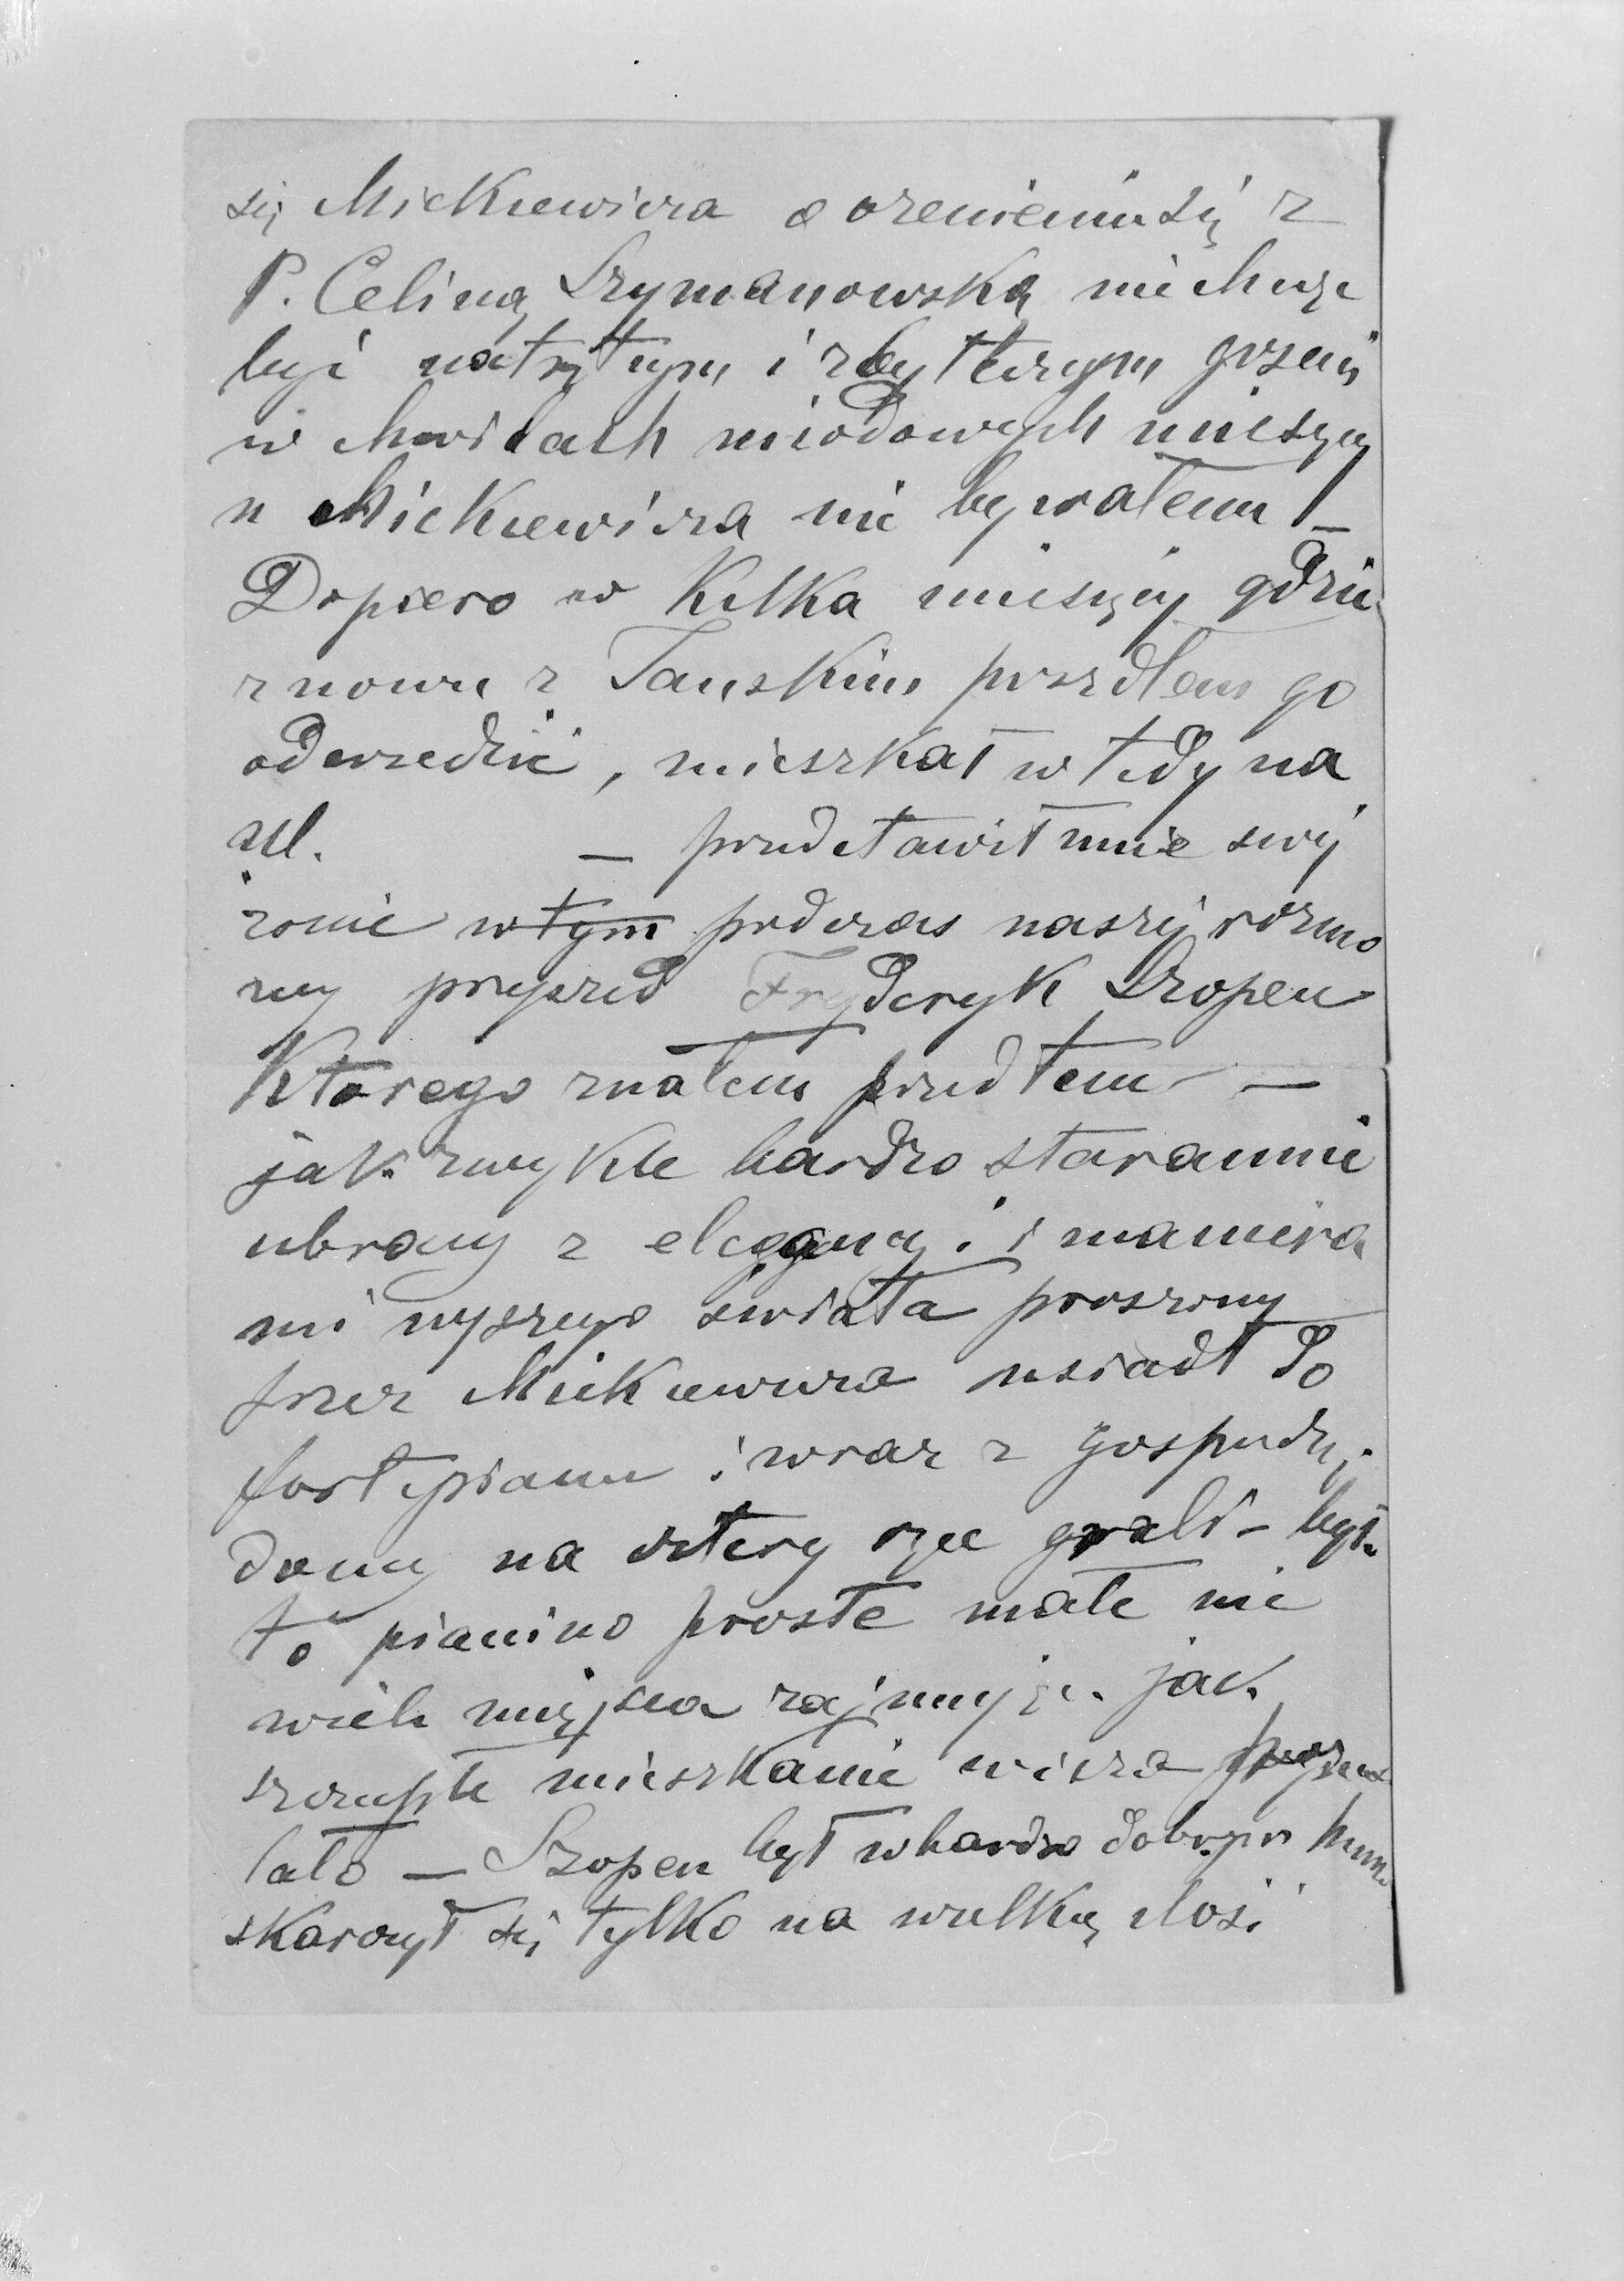 się Mickiewicza o ożenieniu się z
P. Celiną Szymanowską nie chcąc
być natrętnym i zbytecznym gościem
w chwilach miodowych miesięcy
u Mickiewicza nie bywałem –
Dopiero w kilka miesięcy gdzie
znowu z Tańskim poszedłem go
odwiedzić, mieszkał wtedy na
ul. – przedstawił mnie swej
żonie w tym podczas naszej rozmo
wy przyszed Fryderyk Szopen
Którego znałem przedtem –
jak zwykle bardzo starannie
ubrany z elegancyą i maniera
mi wyższego świata proszony
przez Mickiewicza usiadł do
fortepianu i wraz z gospodynią
domu na cztery ręce grali – było
to pianino proste małe nie
wiele miejsca zajmując jak
szczupłe mieszkanie wieszcza
lało – Szopen był w bardzo dobrym hum
skarżył się tylko na wielką ilość